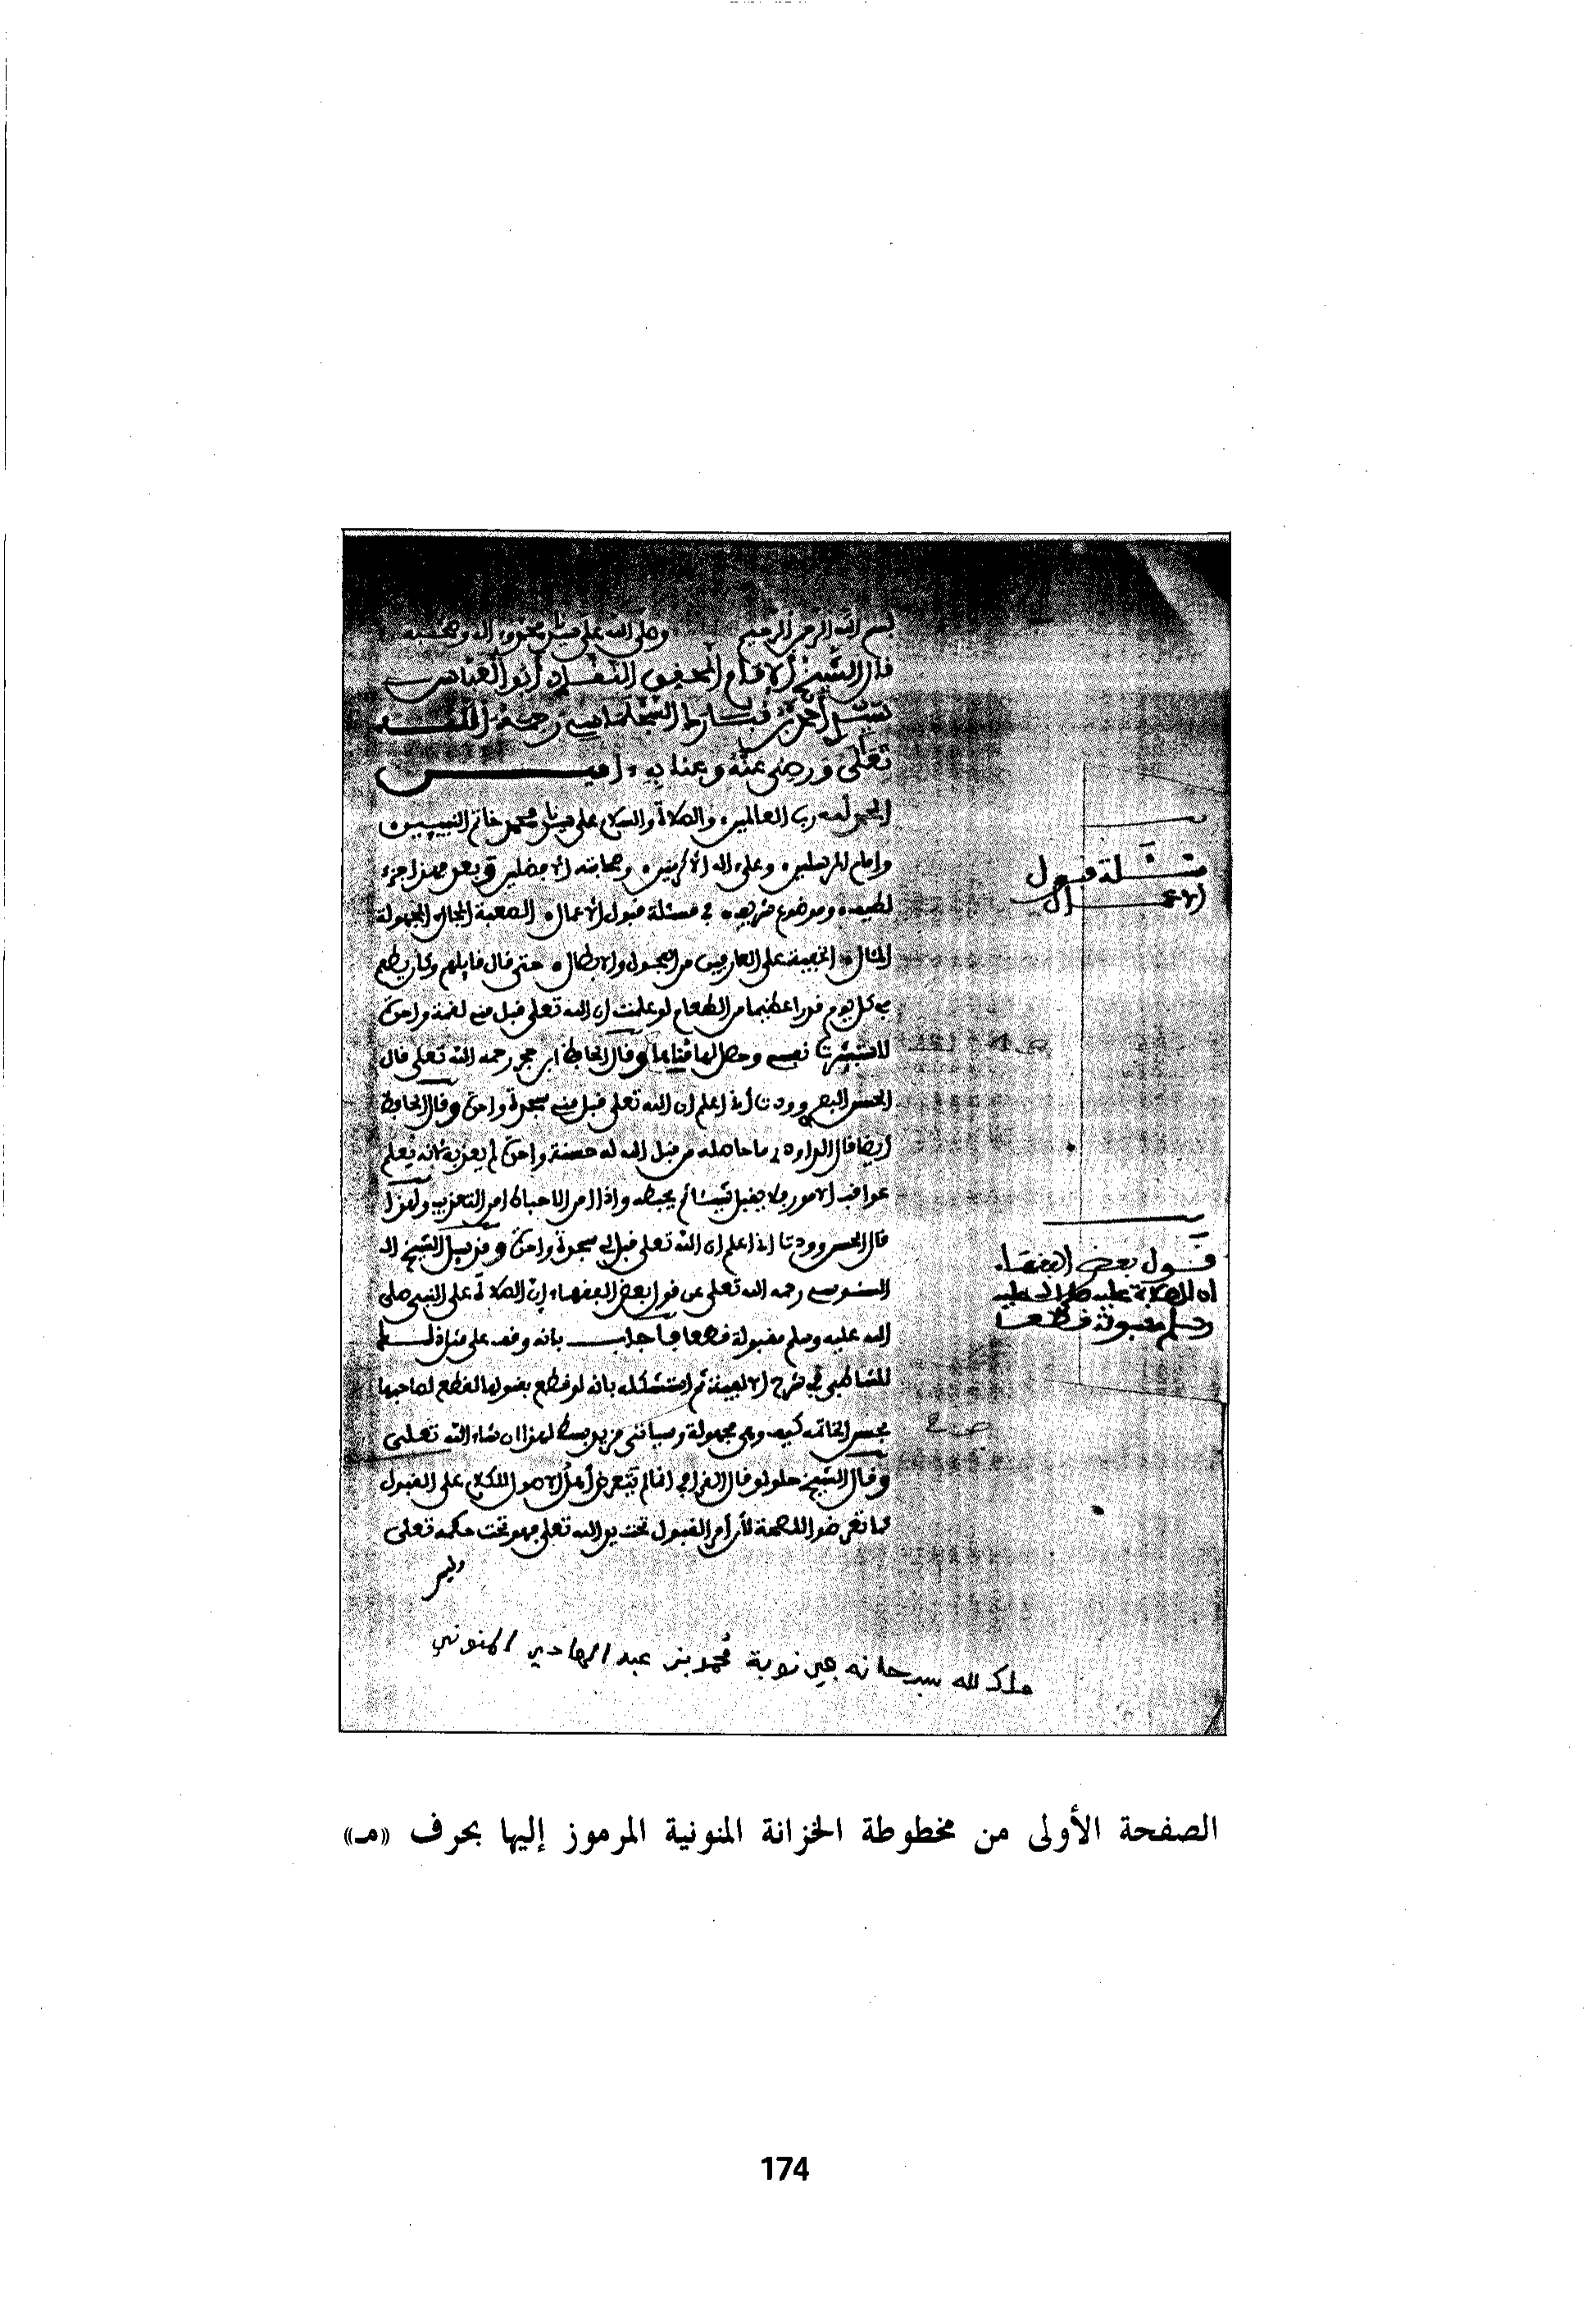 بسم الله الرحمن الرحيم وصلى الله على سيدنا محمد وءاله وصحبه
قال الشيخ الإمام المحقق أبو العباس
سيدي أحمد بن مبارك السجلماسي رحمه الله
تعلى ورضي عنه وعنا به ءاميـن
الحمد لله رب العالمين والصلاة والسلام على سيدنا محمد خاتم النبيين
وإمام المرسلين وعلى ءاله الأكرمين وصحابته الأفضلين وبعد فهذا جزء
لطيف وموضوع شريف في مسئلة قبول الأعمال الصعبة المجال المجهولة
المنال الخفية على العارفين من الفحول والأبطال حتى قال قايلهم وكان يطعم
في كل يوم قدرا عظيما من الطعام لو علمت أن الله تعلى قبل مني لقمة واحدة
لاستبشرت نفسي وحصل لها مناها وقال الحافظ ابن حجر رحمه الله تعلى قال
الحسن البصري وددت أن أعلم أن الله تعلى قبل مني سجدة واحدة وقال الحافظ
أيضا قال الداودي ما حاصله من قبل الله له حسنة واحدة لم يعذبه لأنه يعلم
عواقب الأمور فلا يقبل شيئا ثم يحبطه وإذا أمن الإحباط أمن التعذيب ولهذا
قال الحسن وددت أن أعلم أن الله تعلى قبل لي سجدة واحدة وقد سيل الشيخ
السنوسي رحمه الله تعلى عن قول بعض الفقهاء إن الصلاة على النبي صلى
الله عليه وسلم مقبولة قطعا فأجاب بأنه وقف على مثل ذلك
للشاطبي في شرح الألفية ثم استشكله بأنه لو قطع بقبولها لقطع لصاحبها
بحسن الخاتمة كيف وهي مجهولة وسياتي مزيد بسط لهذا إن شاء الله تعلى
وقال الشيخ حلولو قال القرافي إنما لم يتعرض أهل الأصول للكلام على القبول
كما تعرضوا للصحة لأن أمر القبول تحت يد الله تعلى فهو تحت حكمه تعلى
وليس
مسئلة قبول
الأعمال
قول بعض الفقهاء
ان الصلاة عليه صلى الله عليه
وسلم مقبولة قطعا
ملك لله سبحانه في نوبة محمد بن عبد الهادي المنوني
الصفحة الأولى من مخطوطة الخزانة المنونية المرموز إليها بحرف «مـ»
174